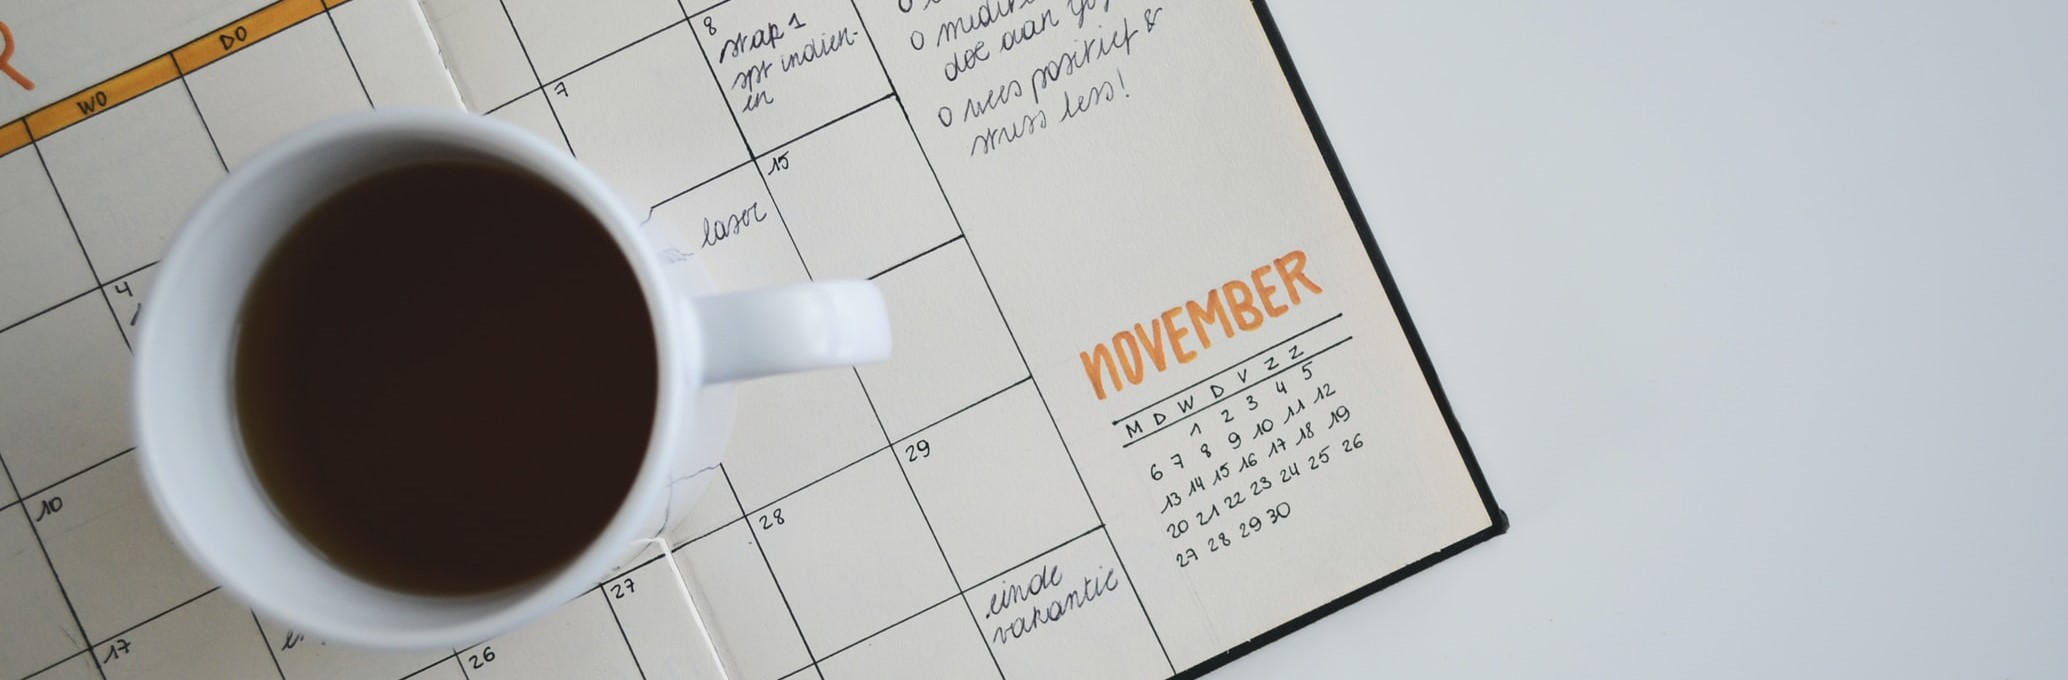 R
WO
DO
4
10
17
7
8
stap 1
spr indien-
en
15
laser
29
28
27
26
einde
vakantie
o medite
doe aan yo
o wees positief &
stress less!
NOVEMBER
M D W D V Z Z
1 2 3 4 5
6 7 8 9 10 11 12
13 14 15 16 17 18 19
20 21 22 23 24 25 26
27 28 29 30